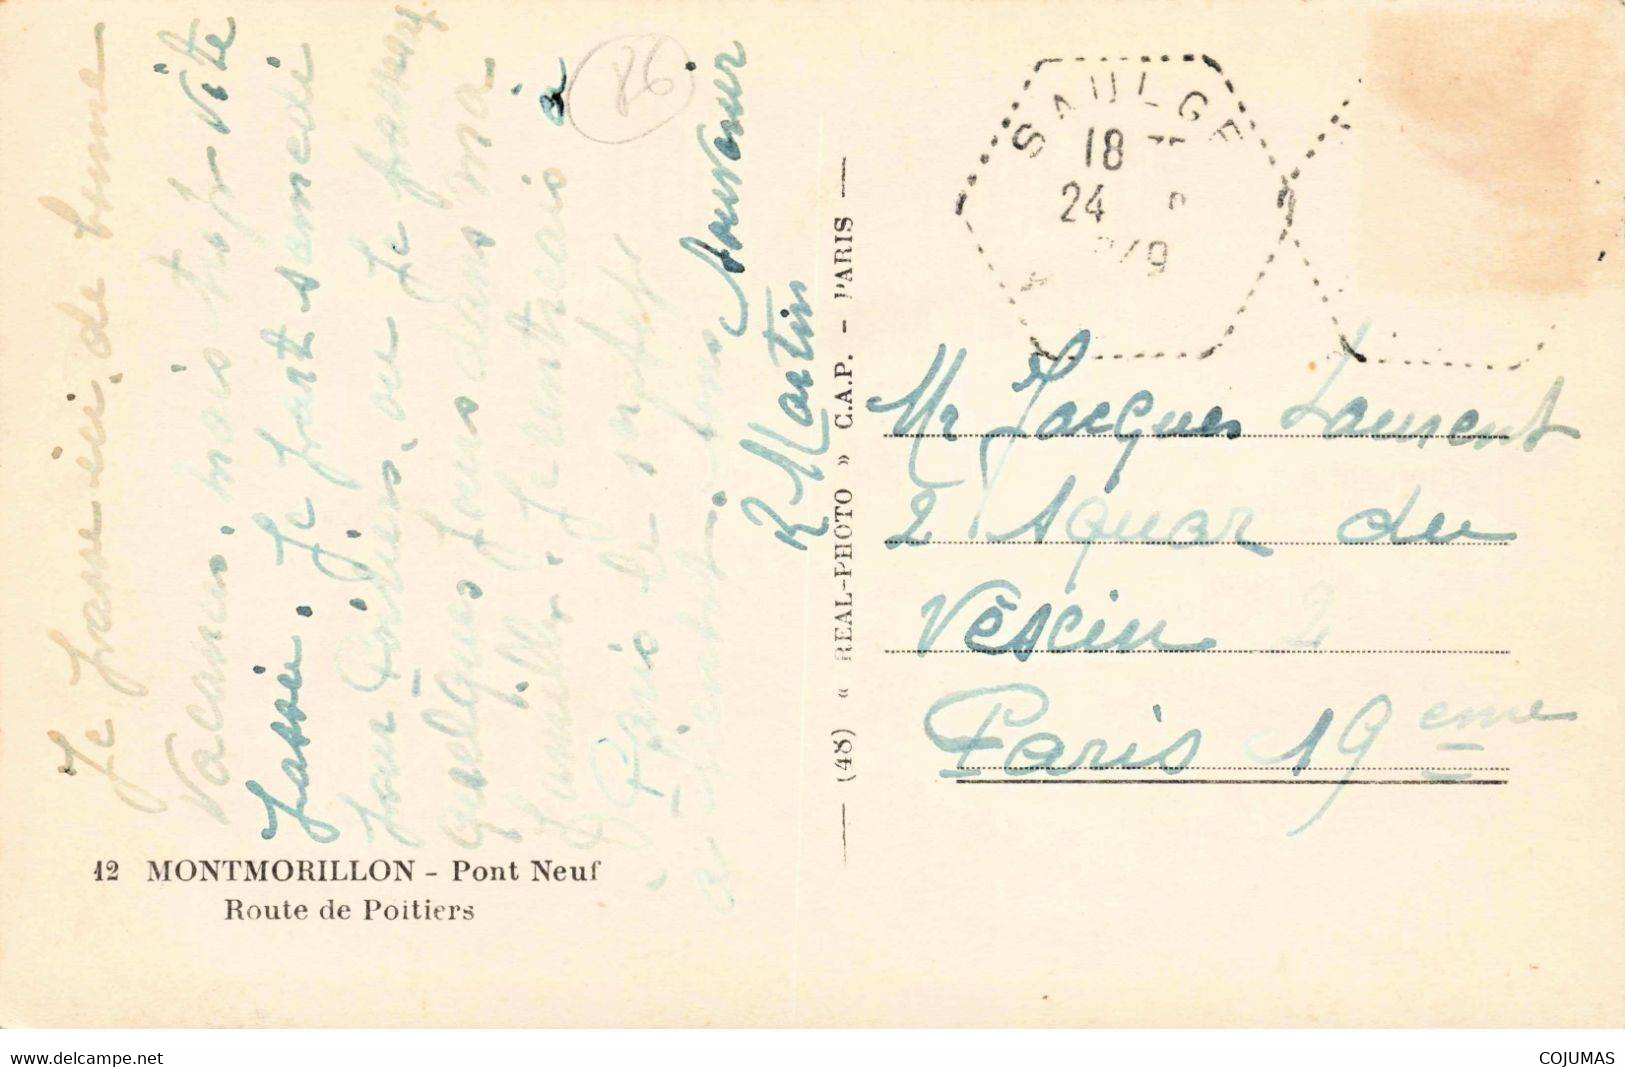 Je passe ici, de bonne
Vacances, mais trop vite
passé. Je part samedi
pour Poitiers, ou je passerez
quelques jours dans ma
famille. Je rentrais à
Paris le sept
a bientôt.
Souvenir
R Martin
86
SAULGE
18
24
Mr Jacques Laurent
2 Squar du
Vèscin 2
Paris 19eme
(48) « REAL-PHOTO » C.A.P. - PARIS
12 MONTMORILLON - Pont Neuf
Route de Poitiers
www.delcampe.net
COJUMAS